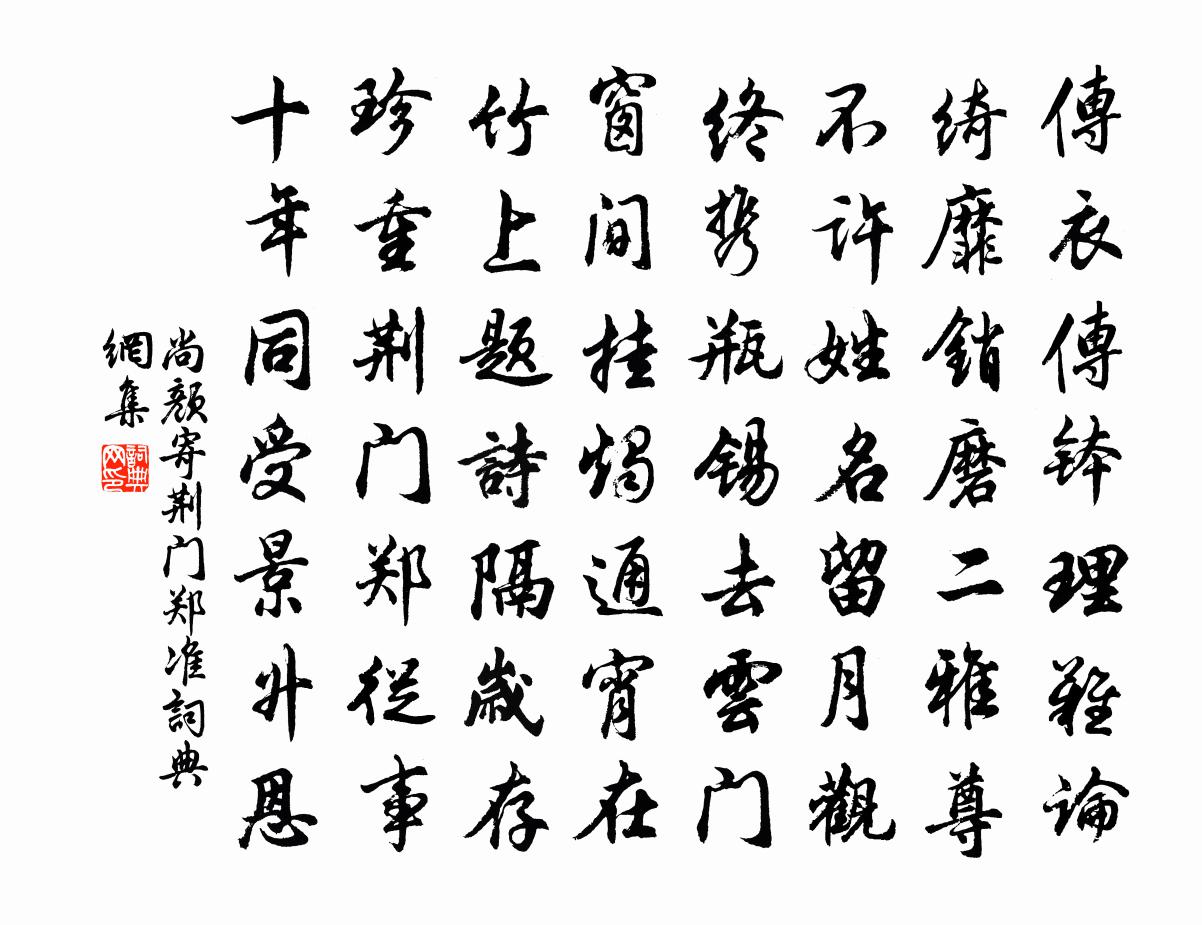 傳衣傳钵理難論
綺靡銷磨二雅尊
不許姓名留月觀
終携瓶錫去雲门
窗間挂燭通宵在
竹上题詩隔歲存
珍重荆门郑從事
十年同受景升恩
尚颜寄荆门郑准詞典
網集
詞典
网印